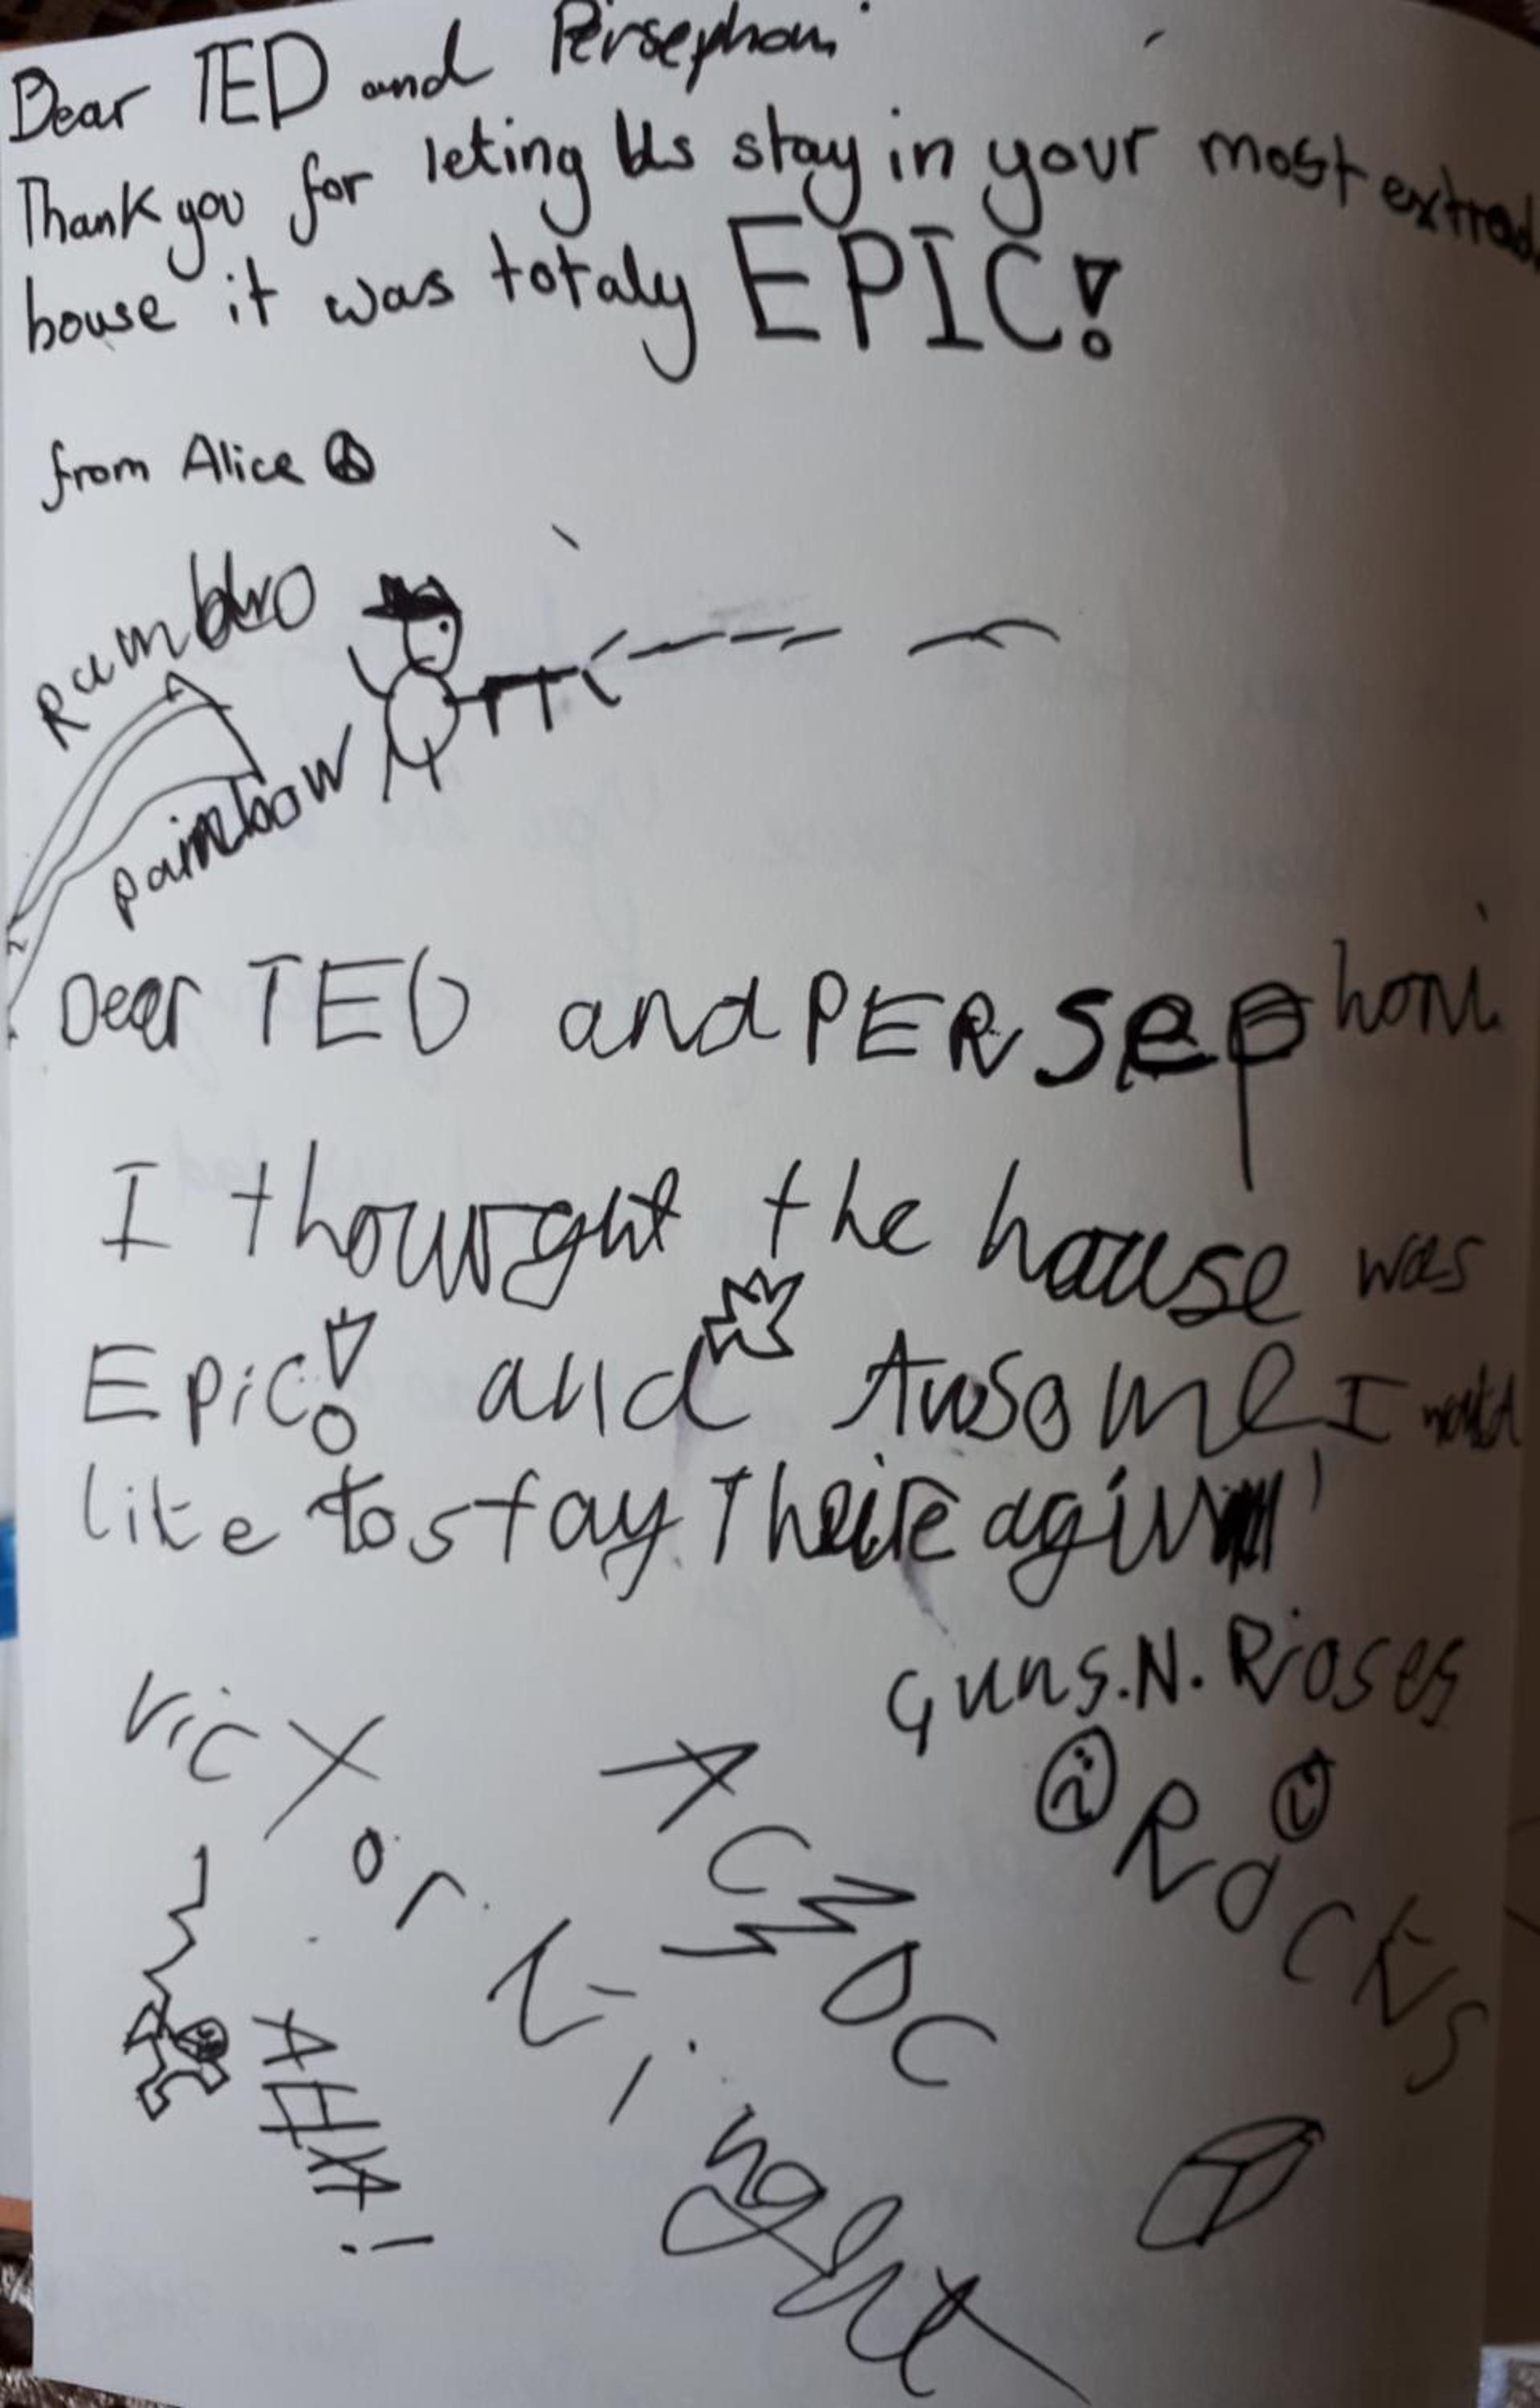 Dear TED and Persephoni
Thank you for leting Us stay in your most extraod
house it was totaly EPIC!
from Alice
Rambo
Rainbow
Dear TED and PERSephoni
I thought the house was
Epic! and Awsome I would
like to stay Theire agin
Guns.N.Roses
ROCKS
Victor
AC DC
AHHA!